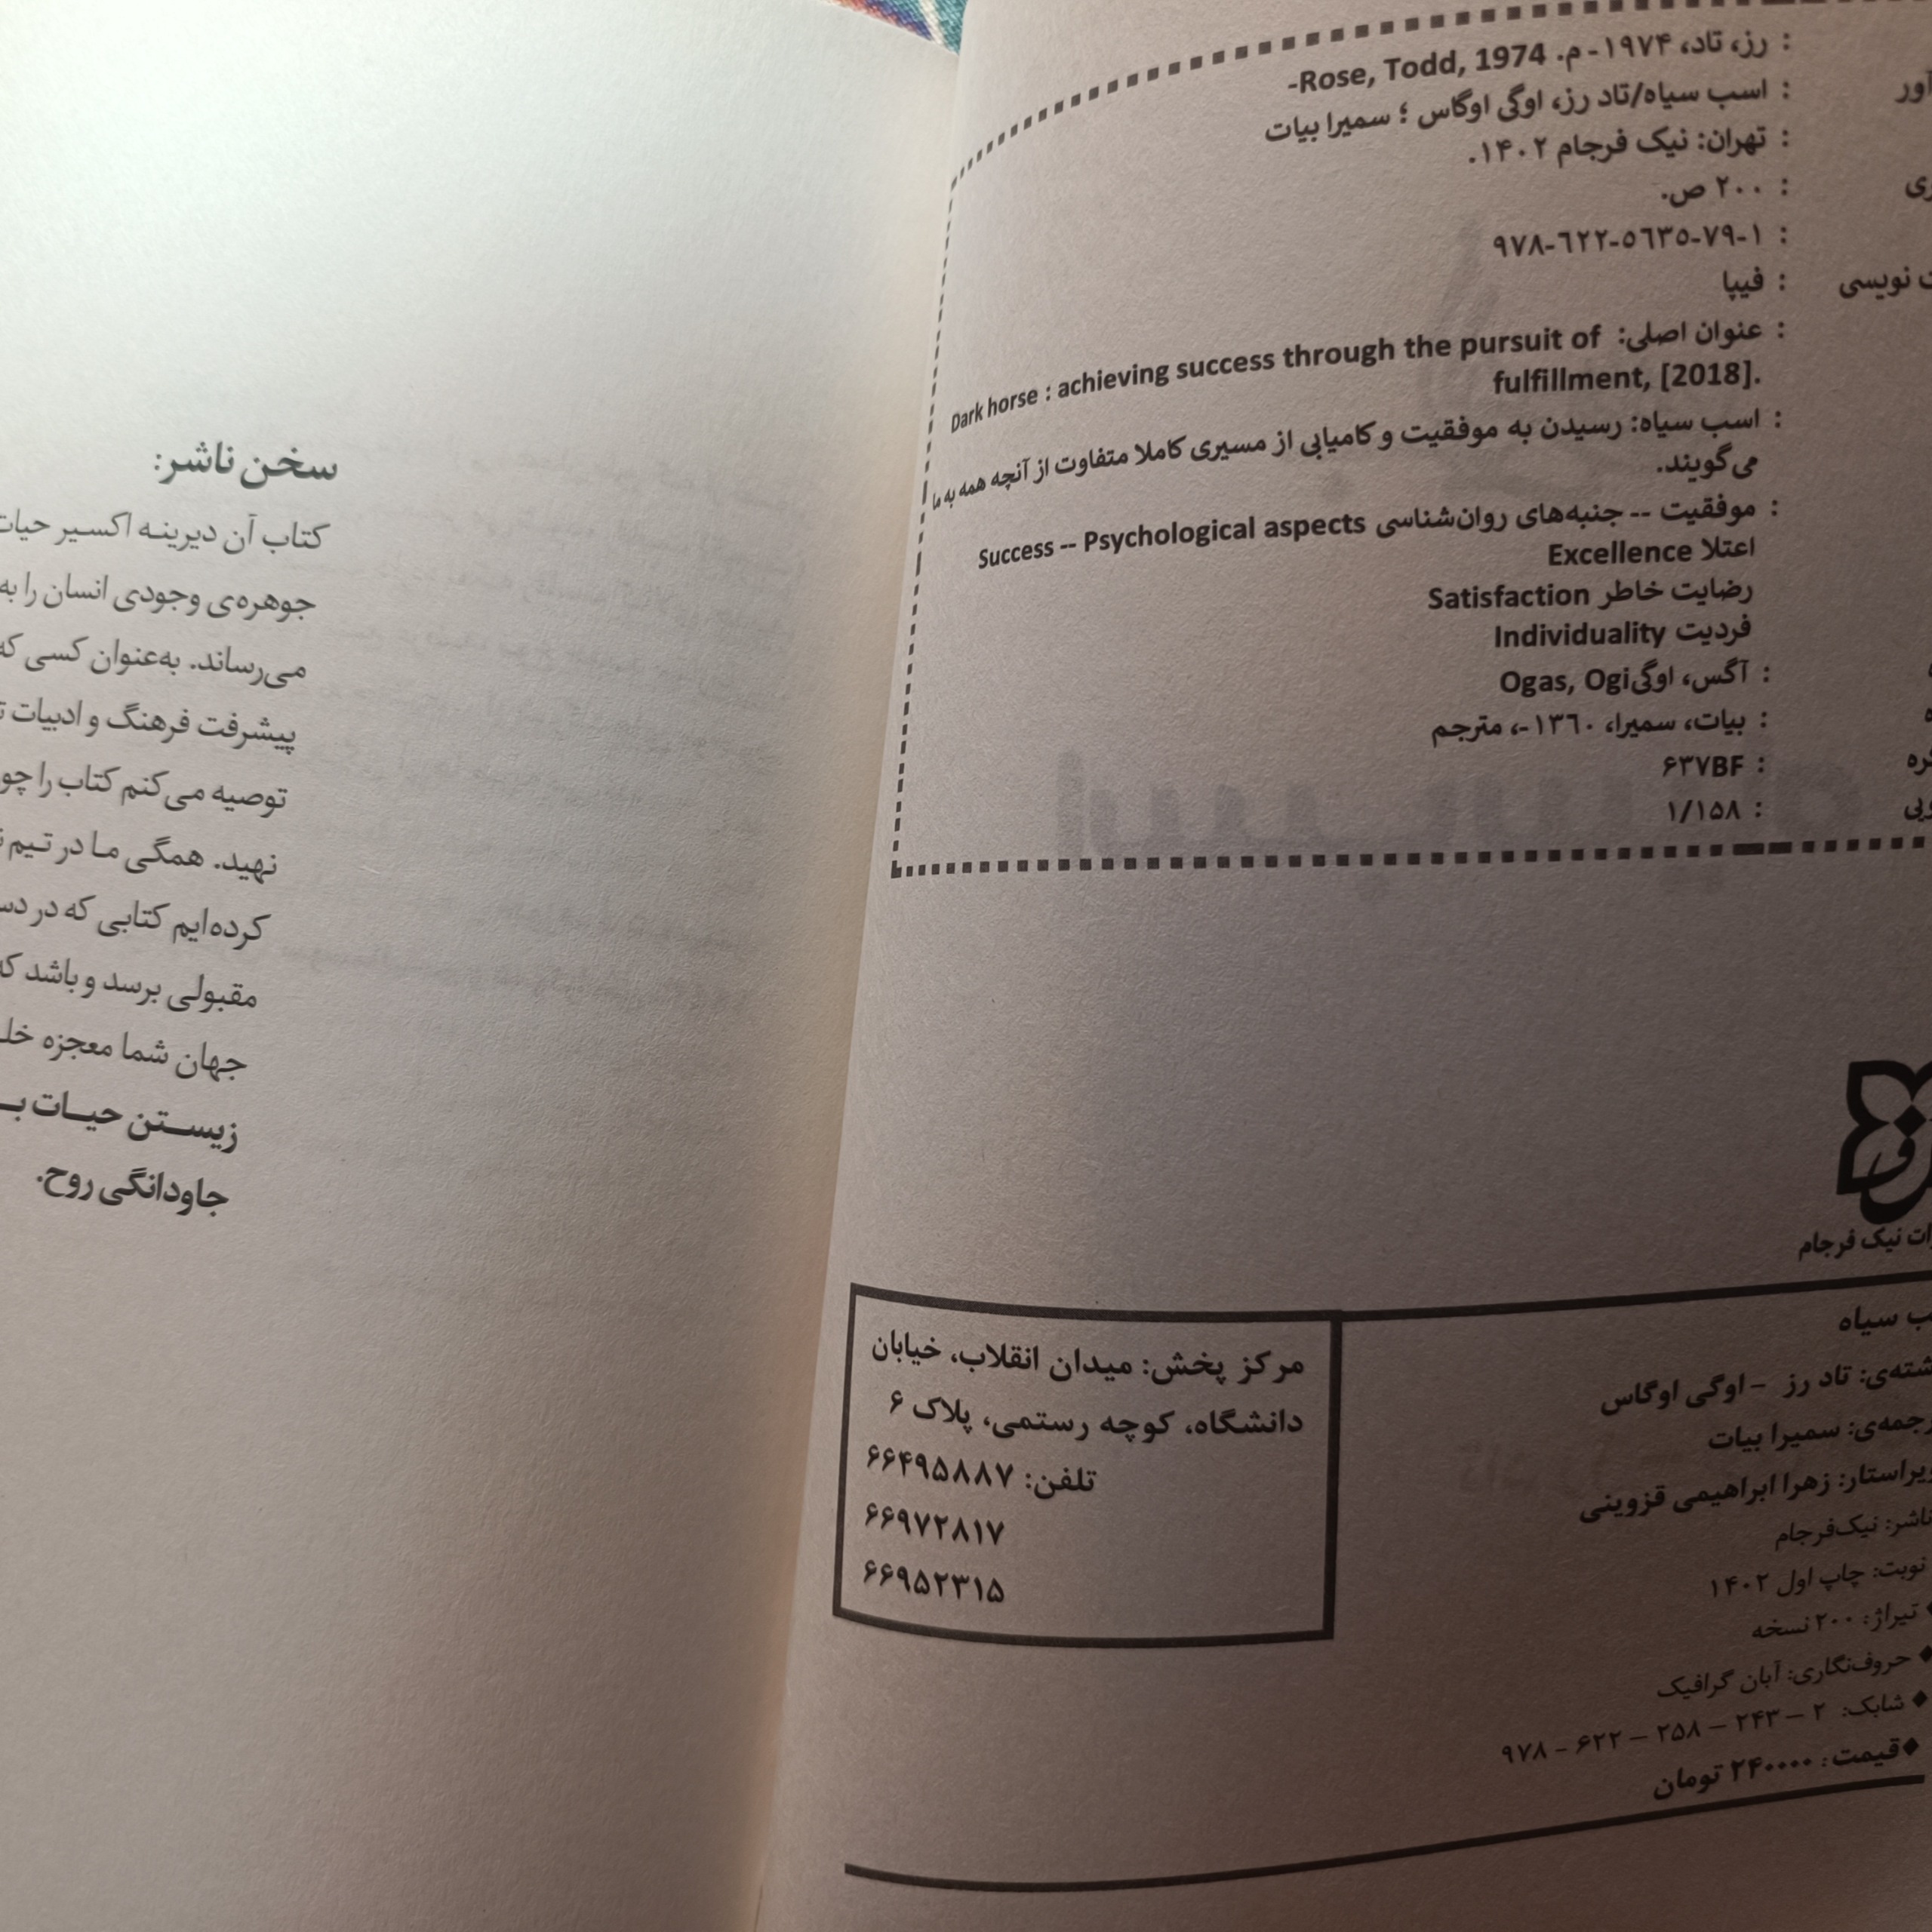 رز، تاد، ۱۹۷۴- م. Rose, Todd, 1974-
: اسب سیاه/تاد رز، اوگی اوگاس ؛ سمیرا بیات
: تهران: نیک فرجام ۱۴۰۲.
: ۲۰۰ ص.
: ۹۷۸-٦۲۲-٥٦۳٥-۷۹-۱
نویسی : فیپا
: عنوان اصلی: Dark horse : achieving success through the pursuit of
fulfillment, [2018].
: اسب سیاه: رسیدن به موفقیت و کامیابی از مسیری کاملا متفاوت از آنچه همه به ما
می‌گویند.
: موفقیت -- جنبه‌های روان‌شناسی Success -- Psychological aspects
اعتلا Excellence
رضایت خاطر Satisfaction
فردیت Individuality
: آگس، اوگی Ogas, Ogi
: بیات، سمیرا، ۱۳٦۰-، مترجم
: ۶۳۷BF
: ۱/۱۵۸
نیک فرجام
سیاه
تاد رز - اوگی اوگاس
سمیرا بیات
زهرا ابراهیمی قزوینی
ناشر: نیک‌فرجام
نوبت: چاپ اول ۱۴۰۲
♦ تیراژ: ۲۰۰ نسخه
♦ حروف‌نگاری: آبان گرافیک
♦ شابک: ۲ – ۲۴۳ – ۲۵۸ – ۶۲۲ – ۹۷۸
♦قیمت: ۲۴۰۰۰۰ تومان
مرکز پخش: میدان انقلاب، خیابان
دانشگاه، کوچه رستمی، پلاک ۶
تلفن: ۶۶۴۹۵۸۸۷
۶۶۹۷۲۸۱۷
۶۶۹۵۲۳۱۵
سخن ناشر:
کتاب آن دیرینه اکسیر حیات
جوهره‌ی وجودی انسان را به
می‌رساند. به‌عنوان کسی که
پیشرفت فرهنگ و ادبیات
توصیه می‌کنم کتاب را
نهید. همگی ما در تیم
کرده‌ایم کتابی که در
مقبولی برسد و باشد که
جهان شما معجزه
زیستن حیات
جاودانگی روح.